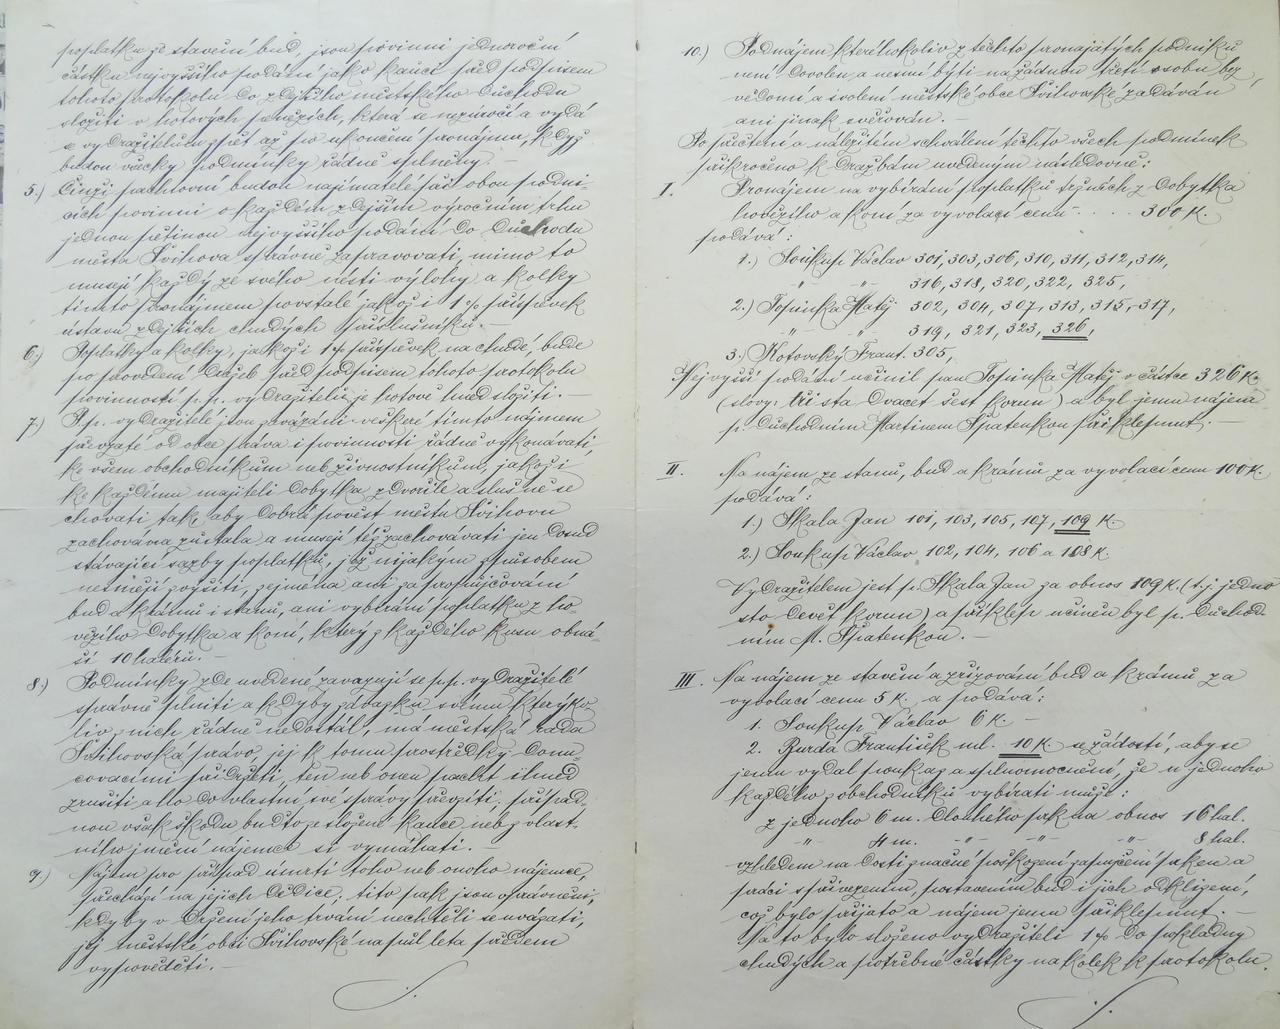 poplatků ze stavění bud, jsou povinni jednoroční
částku nejvyššího podání jako kauci před podpisem
tohoto protokolu do zdejšího městského důchodu
složiti v hotových penězích, která se nezúročí a vydá
se vydražitelům zpět až po ukončení pronájmu, když
budou všecky podmínky řádně splněny. —
5.) Činži pachtovní budou najímatelé při obou podni-
cích povinni o každém zdejším výročním trhu
jednou pětinou nejvyššího podání do Důchodu
města Švihova správně zapravovati, mimo to
musejí každý ze svého nésti výlohy a kolky
tímto pronájmem povstalé jakož i 1% příspěvek
ústavu zdejších chudých příslušníků. —
6.) Poplatky a kolky, jakož i 1% příspěvek na chudé, bude
po provedení dražeb před podpisem tohoto protokolu
povinností p. p. vydražitelů je hotově hned složiti. —
7.) P. p. vydražitelé jsou zavázáni veškeré tímto nájmem
převzaté od obce práva i povinnosti řádně vykonávati,
ke všem obchodníkům neb živnostníkům, jakož i
ke každému majiteli dobytka zdvořile a slušně se
chovati, tak, aby dobrá pověst městu Švihovu
zachována zůstala a musejí též zachovávati jen dosud
stávající sazby poplatků, jež nijakým způsobem
nesmějí zvýšiti, zejména ani za propůjčování
bud a krámů i stanů, ani vybírání poplatků z ho-
vězího dobytka a koní, který z každého kusu obná-
ší 10 haléřů. —
8.) Podmínky zde uvedené zavazují se p.p. vydražitelé
správně plniti a kdyby závazku svému kterýko-
liv z nich řádně nedostál, má městská rada
Švihovská právo, jej k tomu prostředky donu-
covacími přidržeti, ten neb onen pacht ihned
zrušiti a ho do vlastní své správy převzíti, případ-
nou však škodu buďto ze složené kauce neb z vlast-
ního jmění nájemce si vymáhati. —
9.) Nájem pro případ úmrtí toho neb onoho nájemce,
přechází na jejich dědice; tito pak jsou oprávněni,
kdyby v držení jeho trvání nechtěli se uvázati,
jej městské obci Švihovské na půl léta předem
vypověděti. —
10.) Podnájem kteréhokoliv z těchto pronajatých podniků
není dovolen a nesmí býti na žádnou třetí osobu bez
vědomí a svolení městské obce Švihovské zadáván
ani jinak svěřován. —
Po přečtení a náležitém schválení těchto všech podmínek
přikročeno k dražbám uvedeným následovně:
I. Pronájem na vybírání poplatků tržních z dobytka
hovězího a koní za vyvolací cenu . . . . 300 K.
podává:
1.) Soukup Václav 301, 303, 306, 310, 311, 312, 314,
-"- -"- 316, 318, 320, 322, 325,
2.) Topinka Matěj 302, 304, 307, 313, 315, 317,
-"- -"- 319, 321, 323, 326,
3.) Kotovský Frant. 305,
Nejvyšší podání učinil pan Topinka Matěj v částce 326 K.
(slovy: tři sta dvacet šest korun) a byl jemu nájem
p. důchodním Martinem Špatenkou přiklepnut. —
II. Na nájem ze stanů, bud a krámů za vyvolací cenu 100 K.
podává:
1.) Skala Jan 101, 103, 105, 107, 109 K.
2.) Soukup Václav 102, 104, 106 a 108 K.
Vydražitelem jest p. Skala Jan za obnos 109 K. (t. j. jedno
sto devět korun) a příklep učiněn byl p. důchod-
ním M. Špatenkou. —
III. Na nájem ze stavění a zřizování bud a krámů za
vyvolací cenu 5 K. a podává:
1. Soukup Václav 6 K. —
2. Burda František ml. 10 K. se žádostí, aby se
jemu vydal poukaz a splnomocnění, že u jednoho
každého z obchodníků vybírati může:
z jednoho 6 m. dlouhého pak na obnos 16 hal.
-"- 4 m. -"- -"- -"- 8 hal.
vzhledem na dosti značné poškození zapůjčení prken a
práci s přivezením, postavením bud i jich odklizení,
což bylo přijato a nájem jemu přiklepnut. —
Na to bylo složeno vydražiteli 1% do pokladny
chudých a potřebné částky na kolek k protokolu.